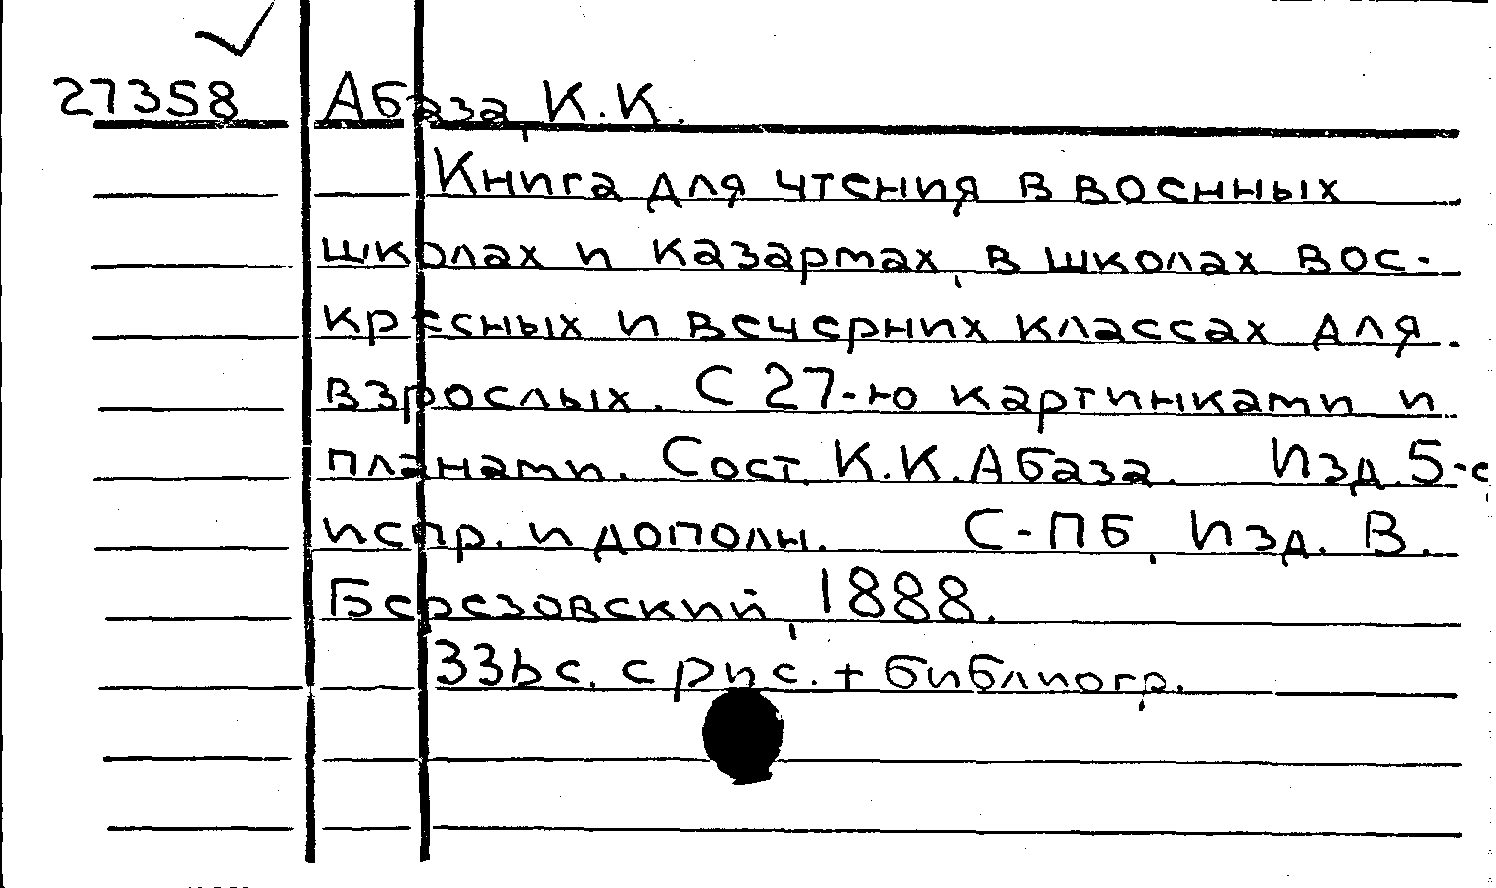 27358 Абаза, К.К.
Книга для чтения в военных
школах и казармах, в школах вос-
кресных и вечерних классах для
взрослых. С 27-ю картинками и
планами. Сост. К.К.Абаза. Изд. 5-е
испр. и дополн. С-ПБ, Изд. В.
Березовский, 1888.
с. с рис. + библиогр.